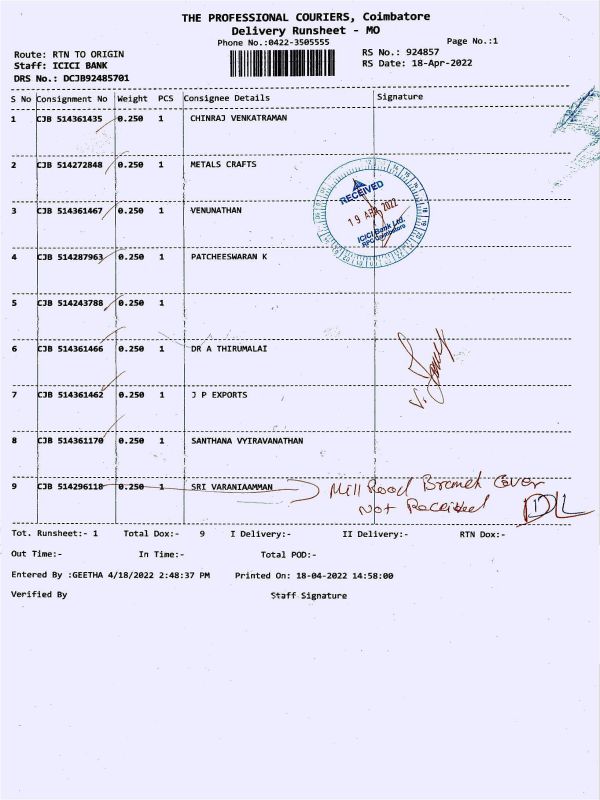 THE PROFESSIONAL COURIERS, Coimbatore
Delivery Runsheet - MO
Phone No.:0422-3505555
Page No.:1
Route: RTN TO ORIGIN
RS No.: 924857
Staff: ICICI BANK
RS Date: 18-Apr-2022
DRS No.: DCJB92485701
S No Consignment No Weight PCS Consignee Details Signature
1 CJB 514361435 0.250 1 CHINRAJ VENKATRAMAN
2 CJB 514272848 0.250 1 METALS CRAFTS
3 CJB 514361467 0.250 1 VENUNATHAN
RECEIVED
19 APR 2022
ICICI Bank Ltd.
RPC Coimbatore
4 CJB 514287963 0.250 1 PATCHEESWARAN K
5 CJB 514243788 0.250 1
6 CJB 514361466 0.250 1 DR A THIRUMALAI
7 CJB 514361462 0.250 1 J P EXPORTS
8 CJB 514361170 0.250 1 SANTHANA VYIRAVANATHAN
9 CJB 514296118 0.250 1 SRI VARANIAAMMAN
Mill Road Branch Cover
Not Received
Tot. Runsheet:- 1 Total Dox:- 9 I Delivery:- II Delivery:- RTN Dox:-
Out Time:- In Time:- Total POD:-
Entered By :GEETHA 4/18/2022 2:48:37 PM Printed On: 18-04-2022 14:58:00
Verified By Staff Signature